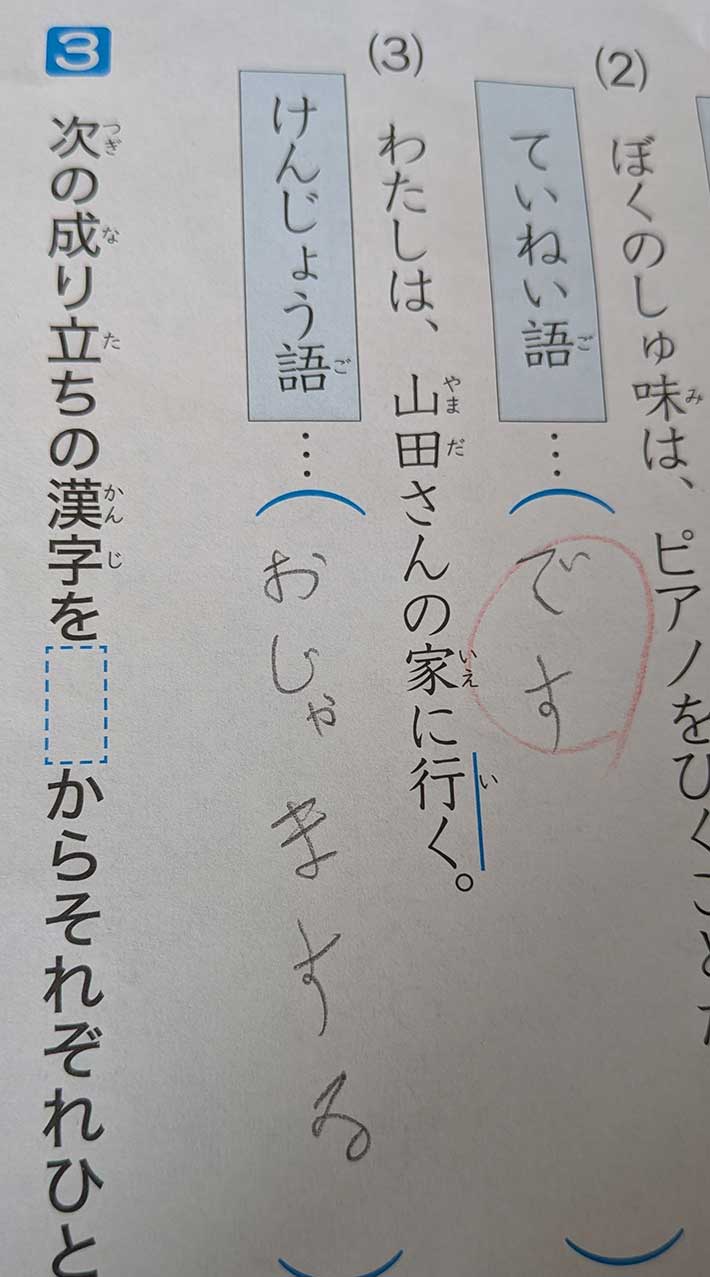 (2) ぼくのしゅ味は、ピアノをひくこと
ていねい語…(です)
(3) わたしは、山田さんの家に行く。
けんじょう語…(おじゃまする)
3 次の成り立ちの漢字を からそれぞれひと